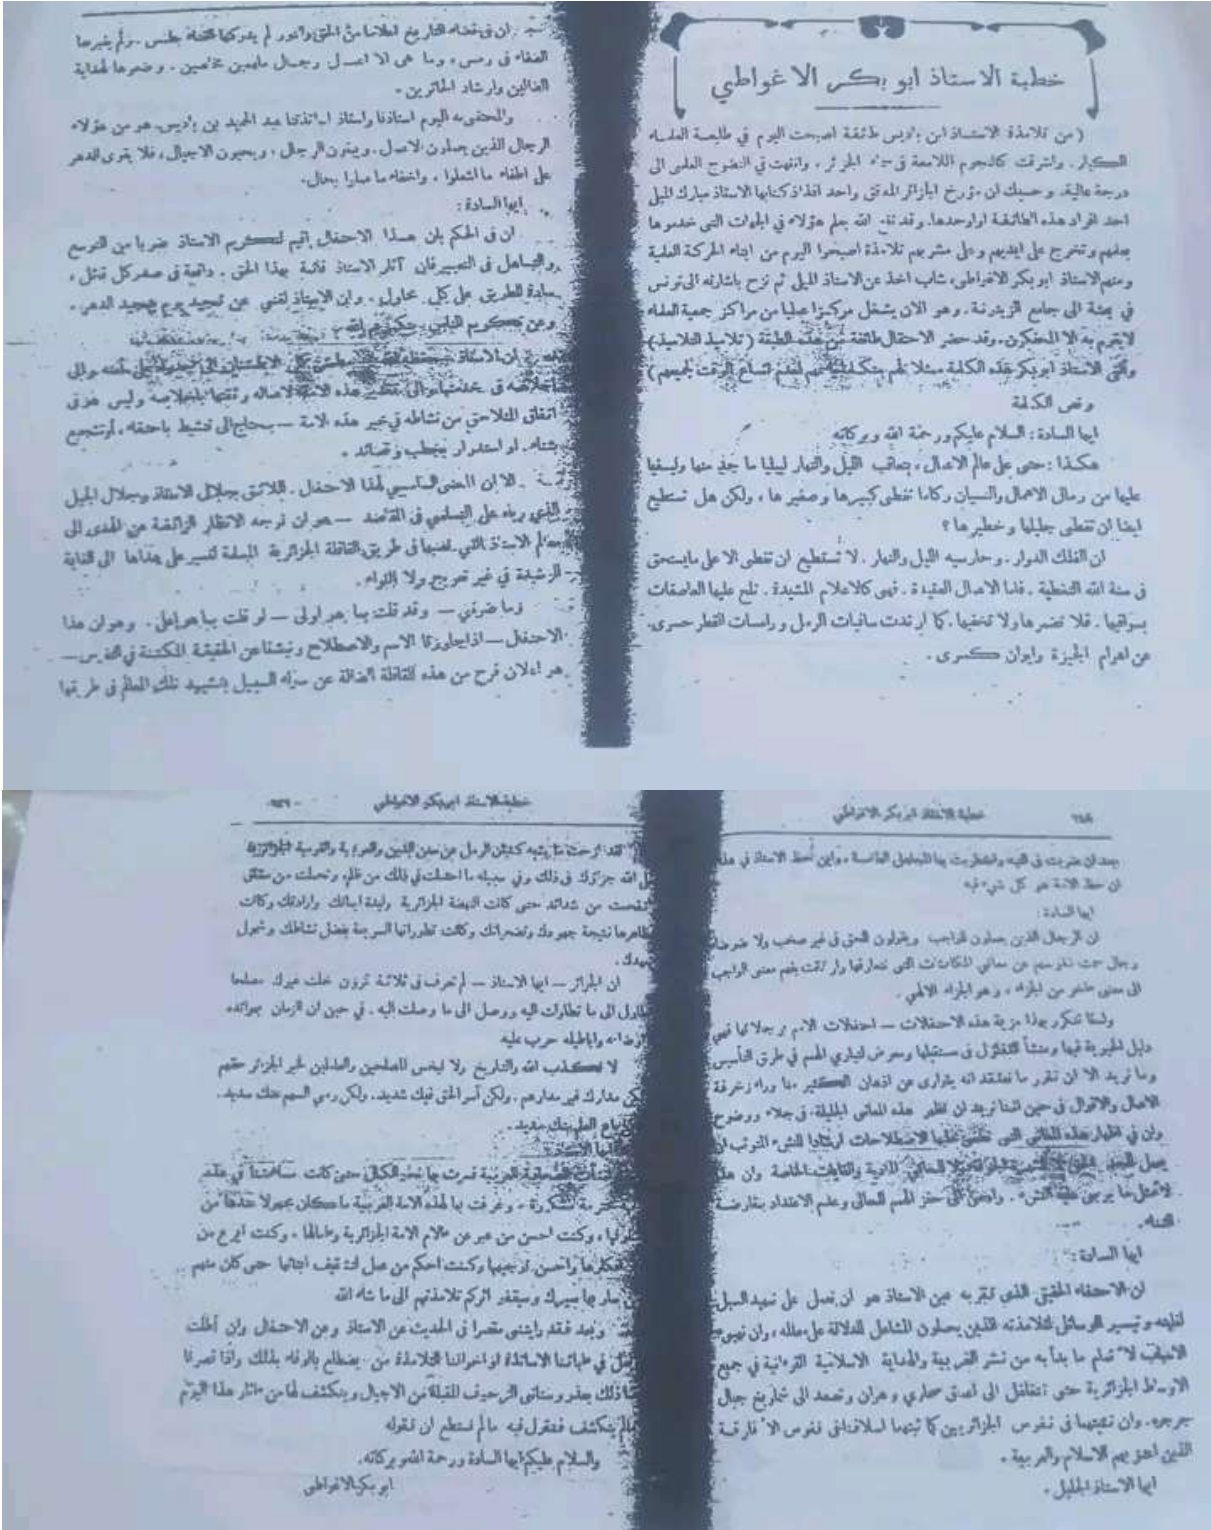 خطبة الاستاذ ابو بكر الاغواطي
( من تلامذة الاستاذ ابن باديس طائفة اصبحت اليوم في طليعة العلماء
الكبار . واشرقت كالنجوم اللامعة في سماء الجزائر . وانتهت في النضوج العلمى الى
درجة عالية. وحسبك ان مؤرخ الجزائر المدقق واحد افذاذ كتابها الاستاذ مبارك الميلى
احد افراد هذه الطائفة او اوحدها. وقد نفع الله بعلم هؤلاء في الجهات التى خدموها
بعلمهم وتخرج على ايديهم وعلى مشربهم تلامذة اصبحوا اليوم من ابناء الحركة العلمية
ومنهم الاستاذ ابو بكر الاغواطى، شاب اخذ عن الاستاذ الميلى ثم نزح باشارته الى تونس
في بعثة الى جامع الزيتونة. وهو الان يشغل مركزا عمليا من مراكز جمعية العلماء
لا يقوم به الا المحنكون. وقد حضر الاحتفال طائفة من هذه الطبقة ( تلاميذ التلاميذ )
والقى الاستاذ ابو بكر هذه الكلمة ممثلا لهم لعدم اتساع الوقت لجميعهم )
ونص الكلمة
ايها السادة : السلام عليكم ورحمة الله وبركاته
هكذا : حتى على عالم الاعمال ، يتعاقب الليل والنهار ليبليا ما جد منها وليسفيا
عليها من رمال الاهمال والنسيان ركاما تغطى كبيرها وصغيرها ، ولكن هل تستطيع
ايضا ان تغطى جليلها وخطيرها ؟
ان الفلك الدوار . وحارسيه الليل والنهار . لا تستطيع ان تغطى الا على ما يستحق
في سنة الله التغطية . فاما الاعمال المفيدة . فهى كالاعلام المشيدة . تلح عليها العاصفات
بسوافيها . فلا تضرها ولا تخفيها . كما ارتدت سافيات الرمل وراسات القطر حسرى.
عن اهرام الجيزة وايوان كسرى .
ان في فضاء التاريخ اعلاما من الحق والنور لم يدركها الفناء بطمس . ولم يغيرها
العفاء في رمس ، وما هى الا اعمال رجال ملهمين مخلصين . وضعوها لهداية
الضالين وارشاد الحائرين .
والمحتفى به اليوم استاذنا واستاذ اساتذتنا عبد الحميد بن باديس. هو من هؤلاء
الرجال الذين يعملون لامل . ويبنون الرجال . ويحيون الاجيال، فلا يقوى الدهر
على اطفاء ما اشعلوا ، واخفاء ما ساروا بحال.
ايها السادة :
ان في الحكم بان هذا الاحتفال اقيم لتكريم الاستاذ ضربا من التوسع
والتساهل في التعبير فان آثار الاستاذ قائمة بهذا الحق . داعية في صدر كل تمثل ،
سادة للطريق على كل محاول . وابن الاستاذ لغنى عن تمجيد يوم بتمجيد الدهر .
وعن تكريم الناس بتكريم الله .
اخلاصه في خدمتها والى تقدير هذه الامة لاعماله وثقتها باخلاصه وليس هو في
اتفاق المتلاحق من نشاطه في خير هذه الامة — بحاجة الى تنشيط باحتفاء ، او تشجيع
بثناء، او استدرار بخطب وقصائد .
الا ان المعنى السامى لهذا الاحتفال . اللائق بجلال الاستاذ وجلال الجيل
الذي رباه على التسامى في المقاصد — هو ان توجه الانظار الزائغة عن الهدى الى
معالم الاستاذ التي نصبها في طريق القافلة الجزائرية المسلمة لتسير على هداها الى الغاية
الرشيدة في غير تعريج ولا التواء .
وما ضرنى — وقد قلت بما هو اولى — لو قلت بما هو اعلى . وهو ان هذا
الاحتفال — اذا تجاوزنا الاسم والاصطلاح ونبشنا عن الحقيقة المكتنة في النفوس —
هو اعلان فرح من هذه القافلة الضالة عن سواء السبيل بتشييد تلك المعالم في طريقها
٦٤٨ خطبة الاستاذ ابو بكر الاغواطي
بعد ان ضربت في التيه واضطربت بها المجاهل الطامسة ، واين احظ الاستاذ في هذا
ان حظ الامة هو كل شيء فيه
ايها السادة :
ان الرجال الذين يعملون للواجب ويقولون للحق في غير صخب ولا ضوضاء
رجال سمت نفوسهم عن معاني المكافئات التى نتعارفها وارتقت بفهم معنى الواجب
الى معنى طاهر من الجزاء ، وهو الجزاء الالهي .
ولسنا ننكر بهذا مزية هذه الاحتفالات — احتفالات الامم برجالاتها فهي
دليل الحيوية فيها ومنشأ التفاؤل في مستقبلها ومعرض لتبارى الهمم في طرق التأسيس
وما نريد الا ان نقرر ما نعتقد انه يتوارى عن اذهان الكثير منا وراء زخرفة
الاعمال والاقوال في حين اننا نريد ان تظهر هذه المعاني الجليلة في جلاء ووضوح
وان في اظهار هذه المعاني التى تطغى عليها الاصطلاحات ارشادا للنشء المتوثب ان
لا تمثل ما يربى عليه النشء . وادعى الى حفز الهمم للمعالى وعدم الاعتداد بقارضة
الثناء.
ايها السادة :
ان الاحتفاء الحقيقى الذى تقر به عين الاستاذ هو ان نعمل على تمهيد السبيل
لغايته وتيسير الوسائل لتلامذته الذين يحملون المشاعل للدلالة على معالمه ، وان نهيئ
الاسباب لاتمام ما بدأ به من نشر العربية والهداية الاسلامية القرءانية في جميع
الاوساط الجزائرية حتى تتغلغل الى اعماق صحاري وهران وتصعد الى شماريخ جبال
جرجره. وان نثبتها في نفوس الجزائريين كما ثبتها اسلافنا في نفوس الافارقة
الذين اعتز بهم الاسلام والعربية .
ايها الاستاذ الجليل .
خطبة الاستاذ ابو بكر الاغواطي - ٦٤٩ -
لقد ازحت ما يشبه كثبان الرمل عن معن الدين والعربية والقومية الجزائرية
الله جزاؤك في ذلك وفي سبيله ما احتملت في ذلك من ظلم، وتحملت من مشاق
من شدائد حتى كانت النهضة الجزائرية وليدة ايمانك وارادتك وكانت
مظاهرها نتيجة جهودك وتضحياتك وكانت تطوراتها السريعة بفضل نشاطك وشمول
جهدك .
ان الجزائر — ايها الاستاذ — لم تعرف في ثلاثة قرون خلت غيرك مصلحا
تطاول الى ما تطاولت اليه ووصل الى ما وصلت اليه . في حين ان الزمان بعوائده
وارضاعه واباطيله حرب عليه
لا نكذب الله والتاريخ ولا نبخس المصلحين والعاملين لخير الجزائر حقهم
لكن مدارك غير مدارهم . ولكن اسر الحق فيك شديد. ولكن رمي السهم منك سديد.
باع العلم منك مديد .
ايها الاستاذ :
وعرفت بها لهذه الامة الغربية ما كان مجهولا عندها من
وكنت احسن من عبر عن ءالام الامة الجزائرية وءامالها . وكنت ابرع من
افكارها واحسن توجيهها وكنت احكم من عمل لتثقيف ابنائها حتى كان منهم
من سار بها سيرك وسيقفو اثركم تلامذتهم الى ما شاء الله
وبعد فقد رايتنى مقصرا في الحديث عن الاستاذ وعن الاحتفال وان اطلت
ولعل في خطباءنا الاساتذة او اخواننا التلامذة من يضطلع بالوفاء بذلك واذا قصرنا
ذلك جهدنا وستاتى الزحوف المقبلة من الاجيال وينكشف لها من ءاثار هذا اليوم
ما لم ينكشف فتقول فيه ما لم نستطع ان نقوله
والسلام عليكم ايها السادة ورحمة الله وبركاته.
ابو بكر الاغواطى